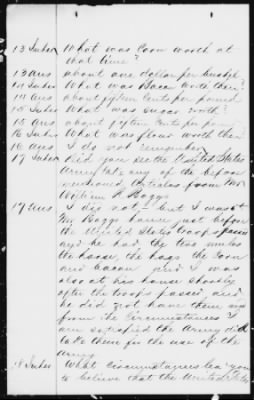 13 Inter What was Corn worth at
that time?
13 Ans about one dollar per bushel
14 Inter What was Bacon worth then?
14 Ans about fifteen cents per pound
15 Inter What was sugar worth?
15 Ans about fifteen cents per
16 Inter What was flour worth then
16 Ans I do not remember
17 Inter Did you see the United States
Army take any of the before
mentioned Articles from Mr
William R Boggs
17 Ans I did not, but I was at
Mr Boggs house just before
the United States troops passed
and he had the two mules
the horse, the hogs the Corn
and bacon and I was
also at his house shortly
after the troops passed and
he did not have them and
from the Circumstances I
am satisfied the Army did
take them for the use of the
army
18 Inter What Circumstances lead you
to believe that the United States